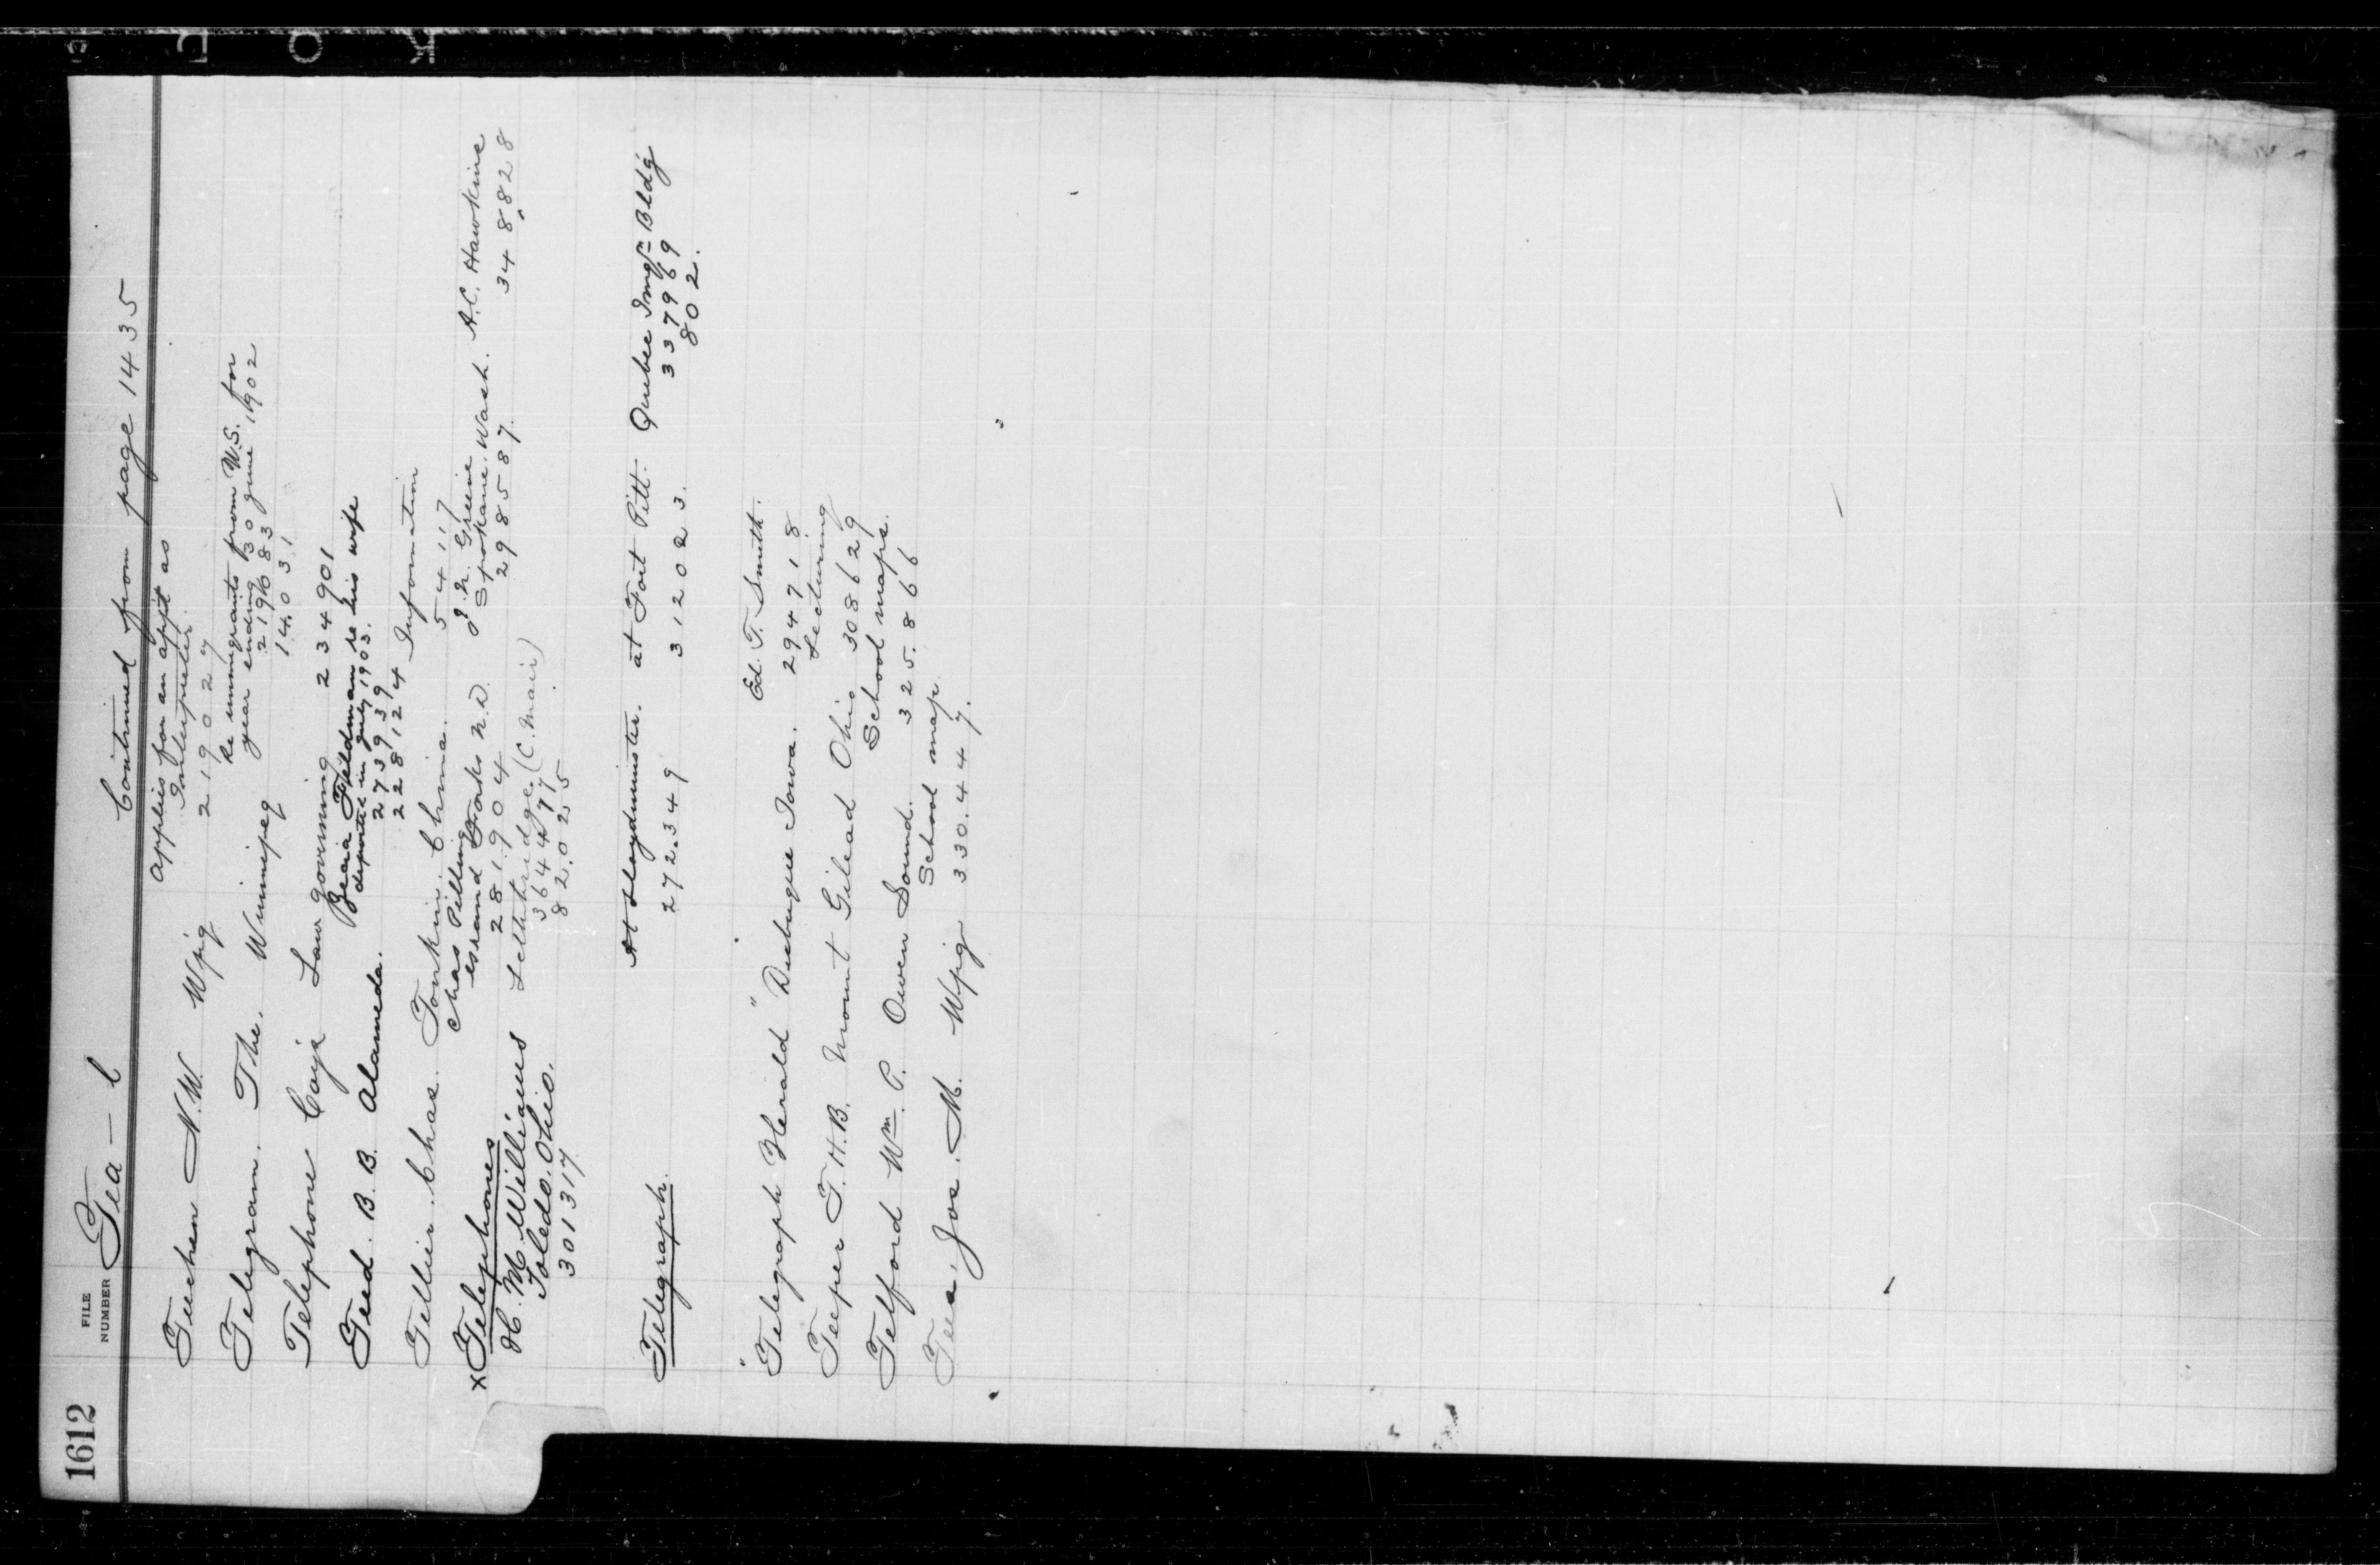 1612 FILE NUMBER Tea — l
Continued from page 1435
Applies for an app't as
N.W. Wpg Interpreter.
219027
re immigrants from U.S. for
Telegram. The. Winnipeg year ending 30 June 1902
219683
14.031
Telephone Coy's Law governing 234901
Feldman re his wife
deported in July 1903.
Teed. B. B. Alameda. 273939
228124
Tellier. Chas. Tonkin. China. Information
5 4 1 1 7
x Telephones Chas Pilling J. N. Greive A.C. Hawkins
Grand Forks N.D. Spokane. Wash.
281904 298587. 348828
H. M. Williams Lethbridge. (C. Mair)
Toledo. Ohio. 364477
301317 82.025
Telegraph. At Lloydminster. at Fort Pitt. Quebec Imgn Bldg
272.349 312023. 337969
802.
"Telegraph Herald" Dubuque Iowa. Ed. T. Smith.
294718
Lecturing
Teeper T. H.B. Mount Gilead Ohio 308629
School maps.
Telford Wm. P. Owen Sound. 325.866
School map
Jos. M. Wpg 330.447.